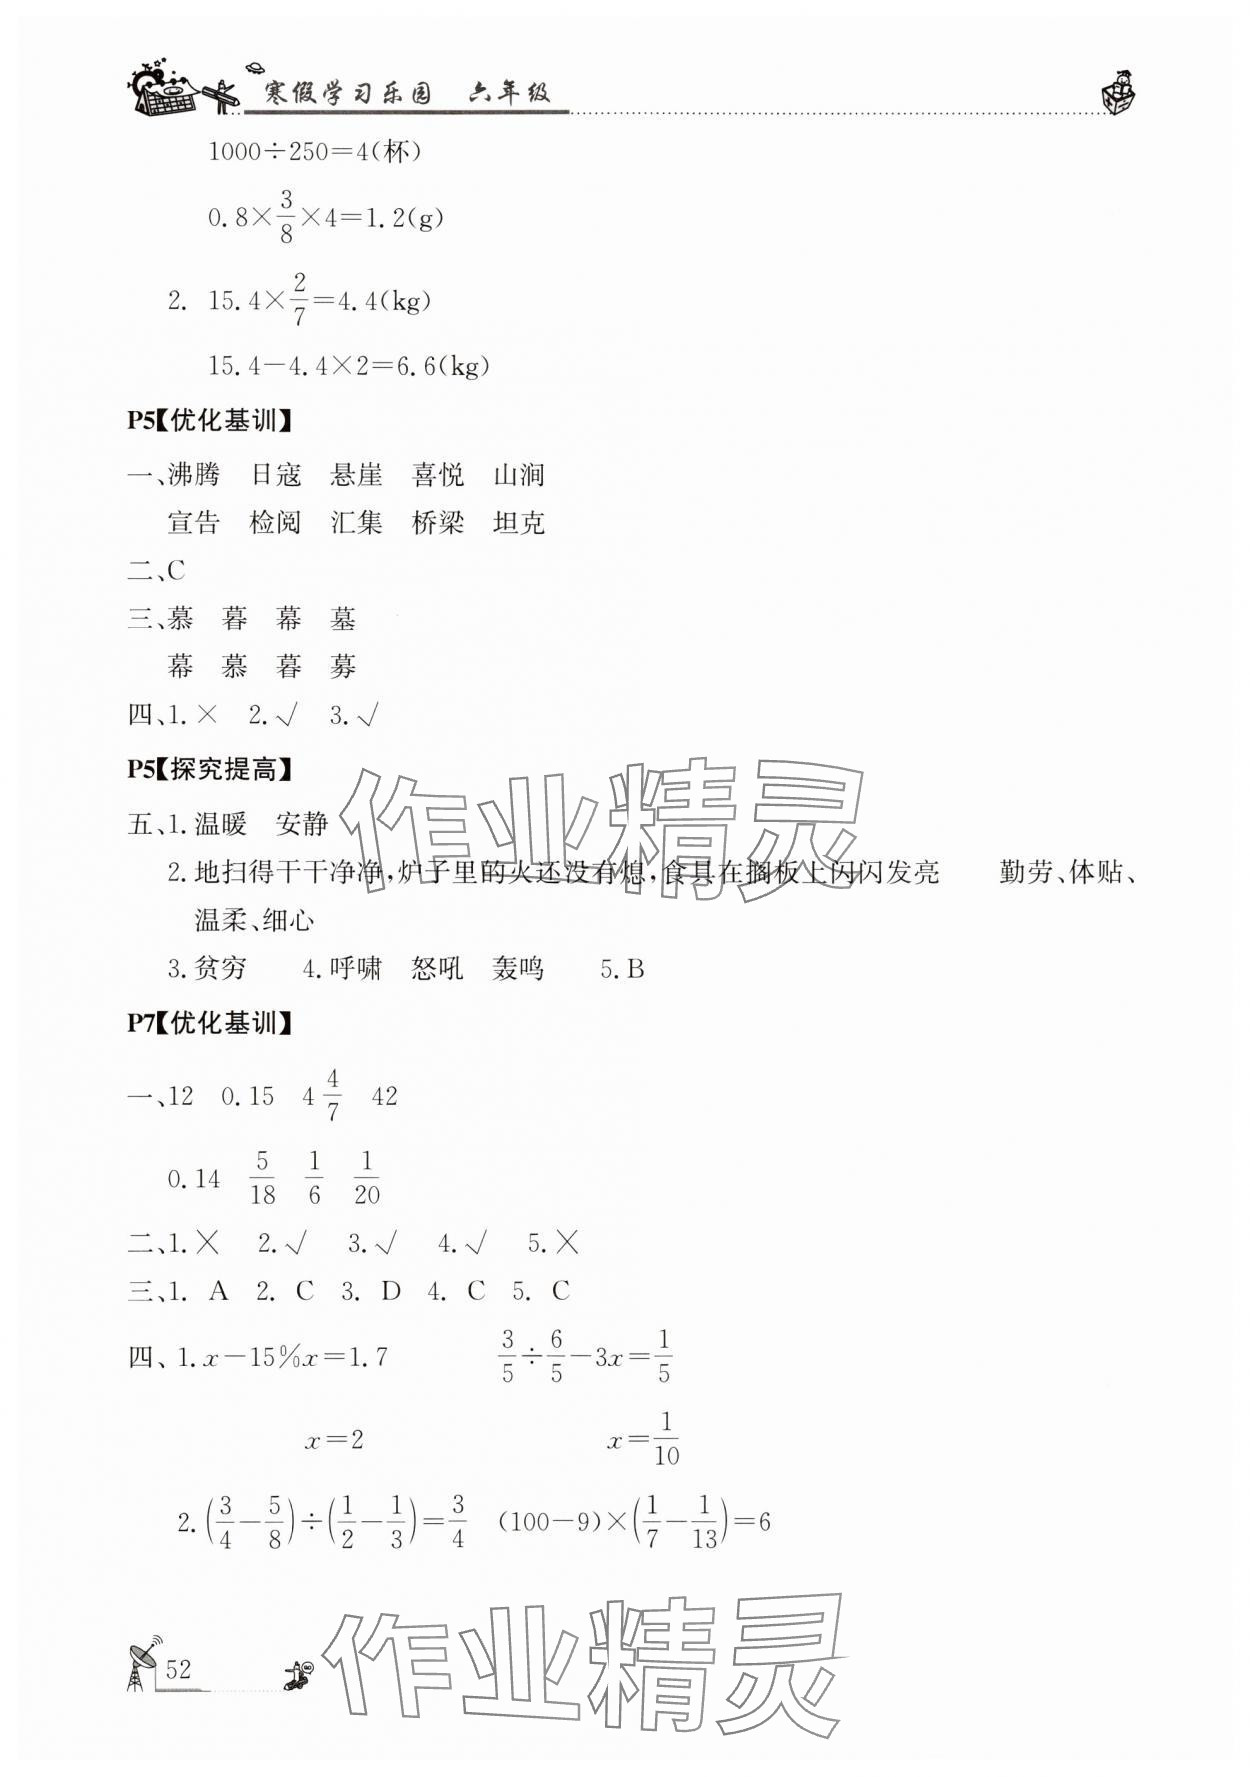 寒假学习乐园　六年级
1000÷250=4(杯)
0.8×3/8×4=1.2(g)
2. 15.4×2/7=4.4(kg)
15.4-4.4×2=6.6(kg)
P5【优化基训】
一、沸腾　日寇　悬崖　喜悦　山涧
宣告　检阅　汇集　桥梁　坦克
二、C
三、慕　暮　幕　墓
幕　慕　暮　募
四、1.×　2.√　3.√
P5【探究提高】
五、1.温暖　安静
2.地扫得干干净净,炉子里的火还没有熄,食具在搁板上闪闪发亮　　勤劳、体贴、
温柔、细心
3.贫穷　　4.呼啸　怒吼　轰鸣　　5.B
P7【优化基训】
一、12　0.15　4 4/7　42
0.14　5/18　1/6　1/20
二、1.×　2.√　3.√　4.√　5.×
三、1. A　2. C　3. D　4. C　5. C
四、1.x-15%x=1.7　　3/5÷6/5-3x=1/5
x=2　　x=1/10
2.(3/4-5/8)÷(1/2-1/3)=3/4　(100-9)×(1/7-1/13)=6
52
作业精灵
作业精灵